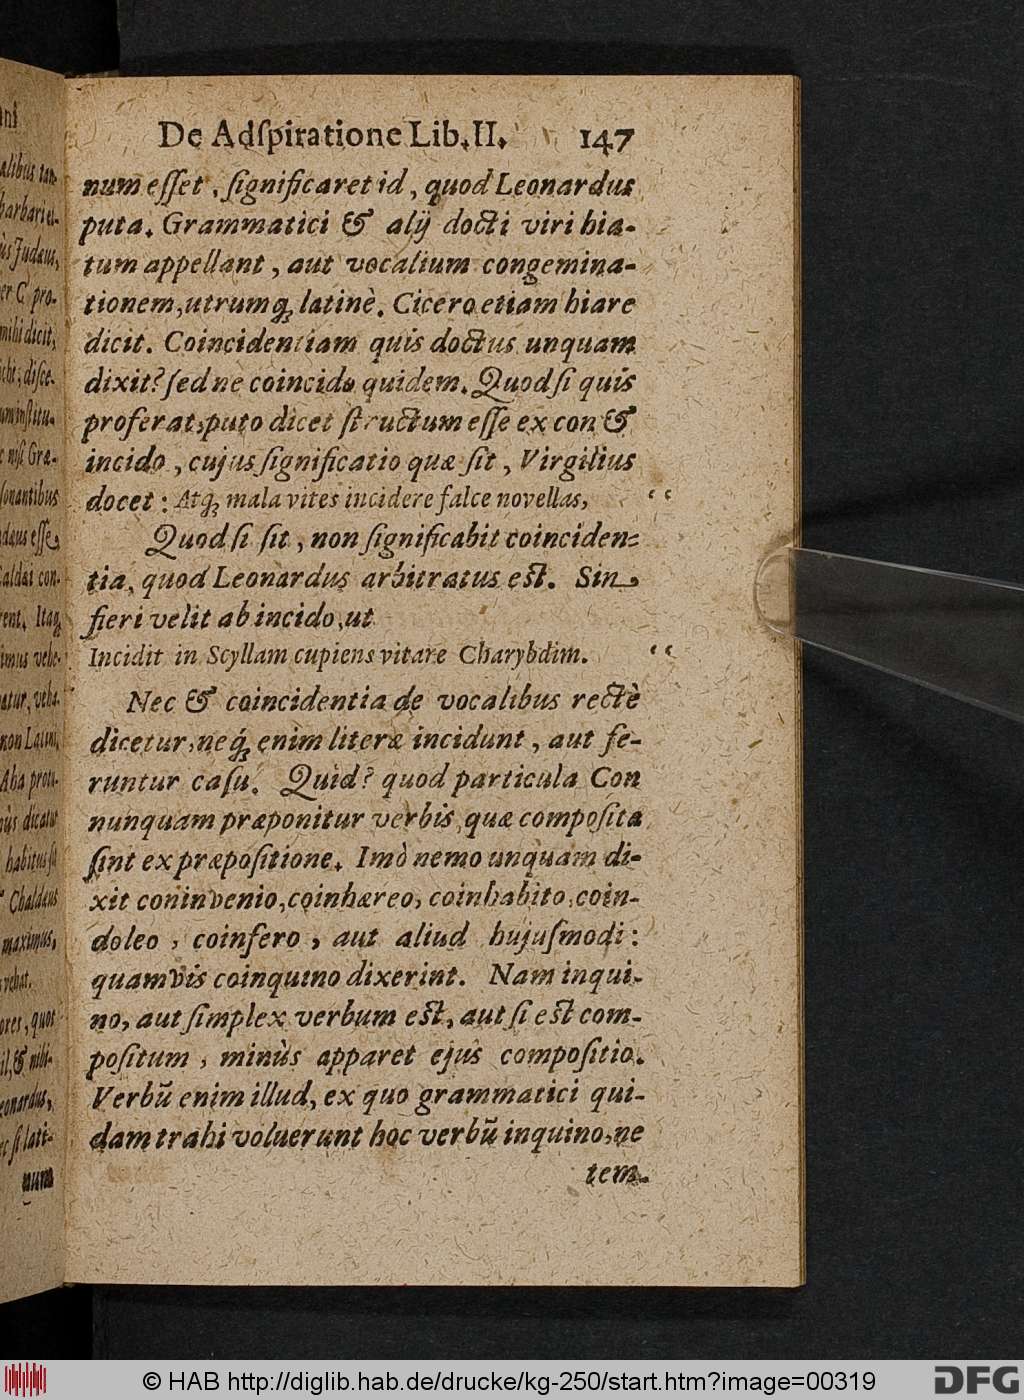 De Adſpiratione Lib. II. 147
num eſſet, ſignificaret id, quod Leonardus
puta. Grammatici & alij docti viri hia-
tum appellant, aut vocalium congemina-
tionem, utrumq́ꝫ latinè. Cicero etiam hiare
dicit. Coincidentiam quis doctus unquam
dixit? ſed ne coincido quidem. Quod ſi quis
proferat, puto dicet ſtructum eſſe ex con &
incido, cujus ſignificatio quæ ſit, Virgilius
docet: Atq́ꝫ mala vites incidere falce novellas, “
Quod ſi ſit, non ſignificabit coinciden-
tia, quod Leonardus arbitratus eſt. Sin,
fieri velit ab incido, ut
Incidit in Scyllam cupiens vitare Charybdim. “
Nec & coincidentia de vocalibus rectè
dicetur, neq́ꝫ enim literæ incidunt, aut fe-
runtur caſu. Quid? quod particula Con
nunquam præponitur verbis, quæ compoſita
ſint ex præpoſitione. Imò nemo unquam di-
xit coninvenio, coinhæreo, coinhabito, coin-
doleo, coinfero, aut aliud hujuſmodi:
quamvis coinquino dixerint. Nam inqui-
no, aut ſimplex verbum eſt, aut ſi eſt com-
poſitum, minùs apparet ejus compoſitio.
Verbũ enim illud, ex quo grammatici qui-
dam trahi voluerunt hoc verbũ inquino, ne
tem.
© HAB http://diglib.hab.de/drucke/kg-250/start.htm?image=00319
DFG